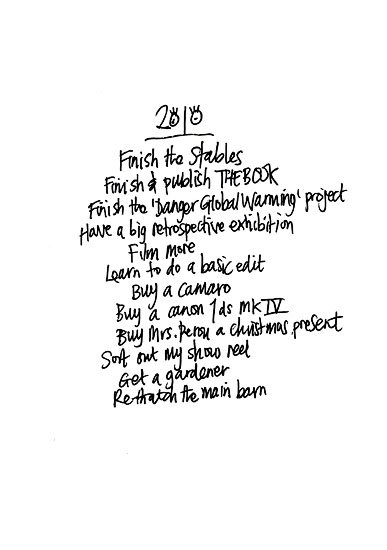 2010
Finish the Stables
Finish & publish THE BOOK
Finish the 'Danger Global Warming' project
Have a big retrospective exhibition
Film more
Learn to do a basic edit
Buy a camaro
Buy a canon 1ds mk IV
Buy Mrs. Perou a christmas present
Sort out my show reel
Get a gardener
Re-thatch the main barn